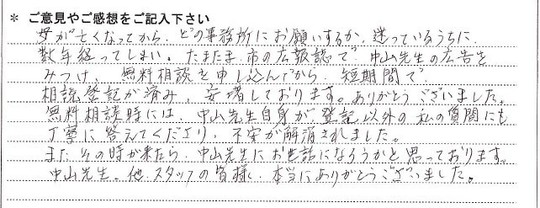 * ご意見やご感想をご記入下さい
母が亡くなってから、どの事務所にお願いするか、迷っているうちに、
数年経ってしまい、たまたま市の広報誌で、中山先生の広告を
みつけ、無料相談を申し込んでから、短期間で
相談登記が済み、安堵しております。ありがとうございました。
無料相談時には、中山先生自身が、登記以外の私の質問にも
丁寧に答えてくださり、不安が解消されました。
またその時が来たら、中山先生にお世話になろうかと思っております。
中山先生、他、スタッフの皆様、本当にありがとうございました。